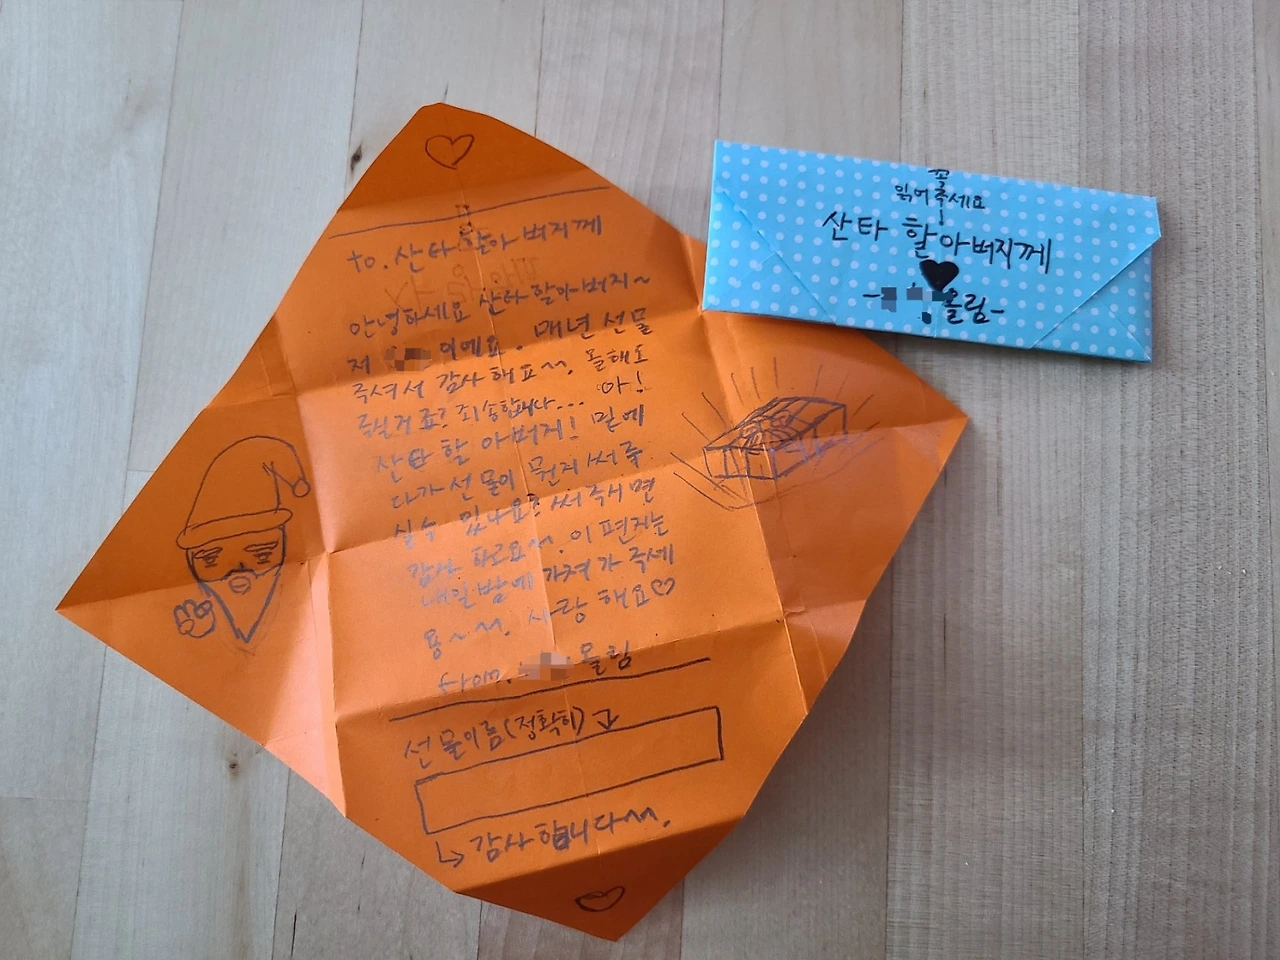 to. 산타 할아버지께
안녕하세요 산타할아버지~
저 이에요. 매년 선물
주셔서 감사해요~. 올해도
주실거죠? 죄송합니다... 아!
산타 할아버지! 밑에
다가 선물이 뭔지 써주
실수 있나요? 써주시면
감사하고요~. 이 편지는
내일밤에 가져가 주세
용~~. 사랑해요♡
올림
선물이름(정확히)
감사합니다~.
꼭
읽어주세요
!
산타 할아버지께
- 올림-